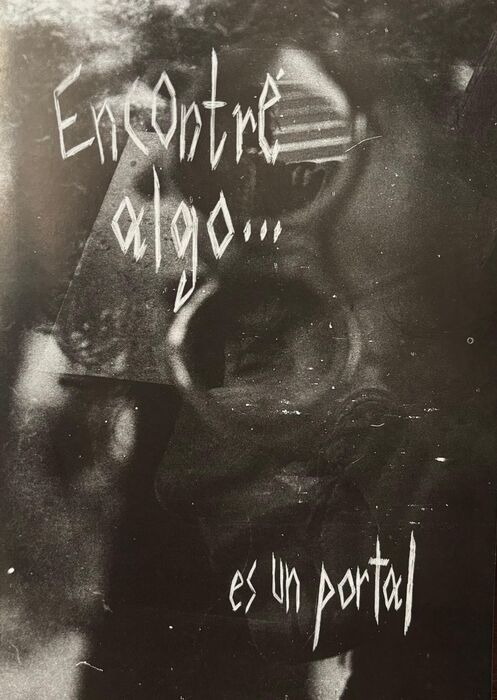 Encontré
algo...
es un portal